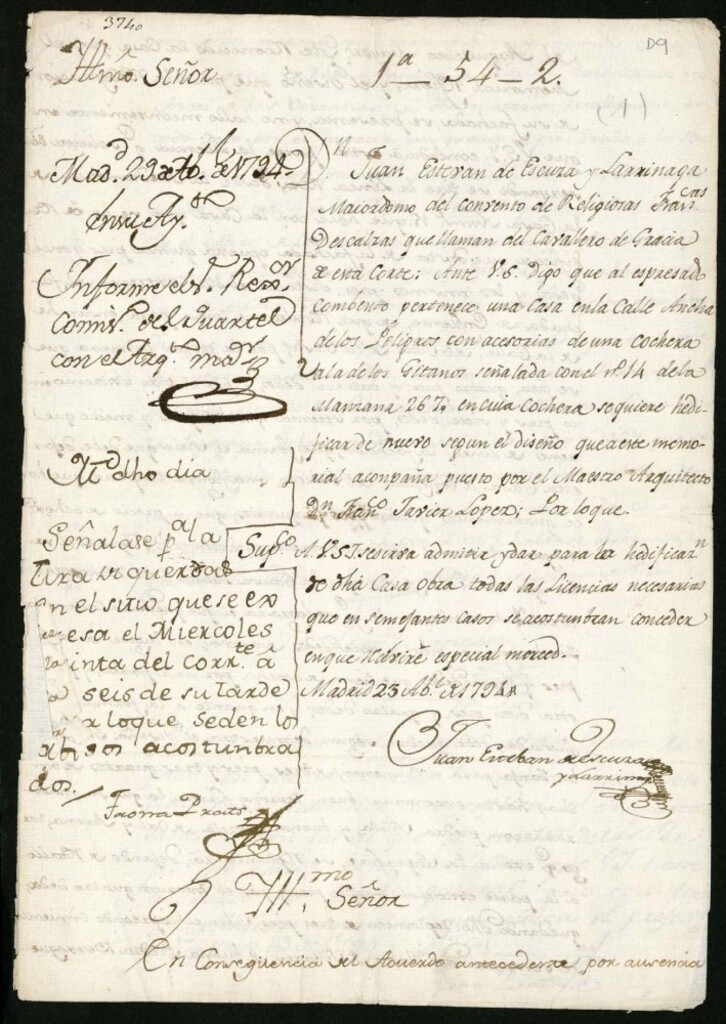 3740
D9
Illmo. Señor
1a — 54 — 2.
(1)
Madd. 29 de Abl. de 1794.
En su Ayto.
Informe el Sr. Rexor.
Comisº. del Quartel
con el Arqto. mayr.
Md. dho dia
Señalase pa. la
tira de querdas
en el sitio que se ex
esa el Miercoles
inta del Corrte. á
seis de su tarde
a lo que se den lo
acostunbra
dos.
Illmo. Señor
Dn. Juan Estevan de Escura y Larrinaga
Maiordomo del convento de Religiosas Francas
Descalzas que llaman del Cavallero de Gracia
de esta Corte: Ante V.S. Digo que al espresado
combento pertenece una Casa en la Calle Ancha
de los Peligros con acesorias de una cochera
a la de los Gitanos señalada con el nº. 14 de la
Manzana 267. en cuia Cochera se quiere hedi-
ficar de nuevo segun el diseño que a este memo-
rial aconpaña puesto por el Maestro Arquitecto
Dn. Franco. Javier Lopez; Por lo que.
Supco. A V.S.I se sirva admitir y dar para la hedificazn.
de dha Casa obra todas las Licencias necesarias
que en semejantes casos se acostunbran conceder
en que Recivire especial merced.
Madrid 23 Abl. de 1794
Juan Esteban de Escura
y Larrinaga
En Conseqüencia del Acuerdo antecedente por ausencia